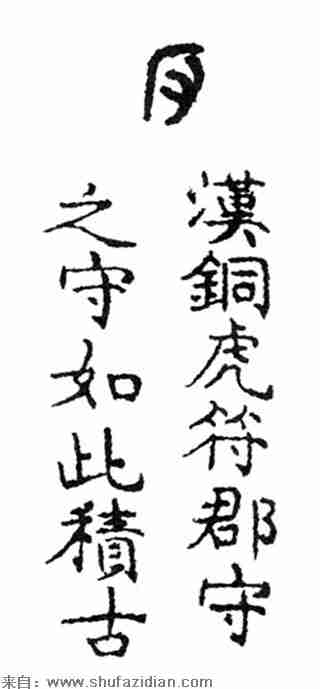 漢銅虎符郡守
之守如此積古
来自：www.shufazidian.com